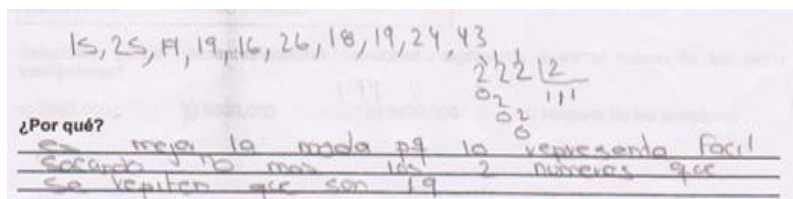 15, 25, 17, 19, 16, 26, 18, 19, 24, 43
222 2
02 111
02
0
¿Por qué?
es mejor la moda pq lo representa facil
sacando no mas los 2 numeros que
se repiten que son 19